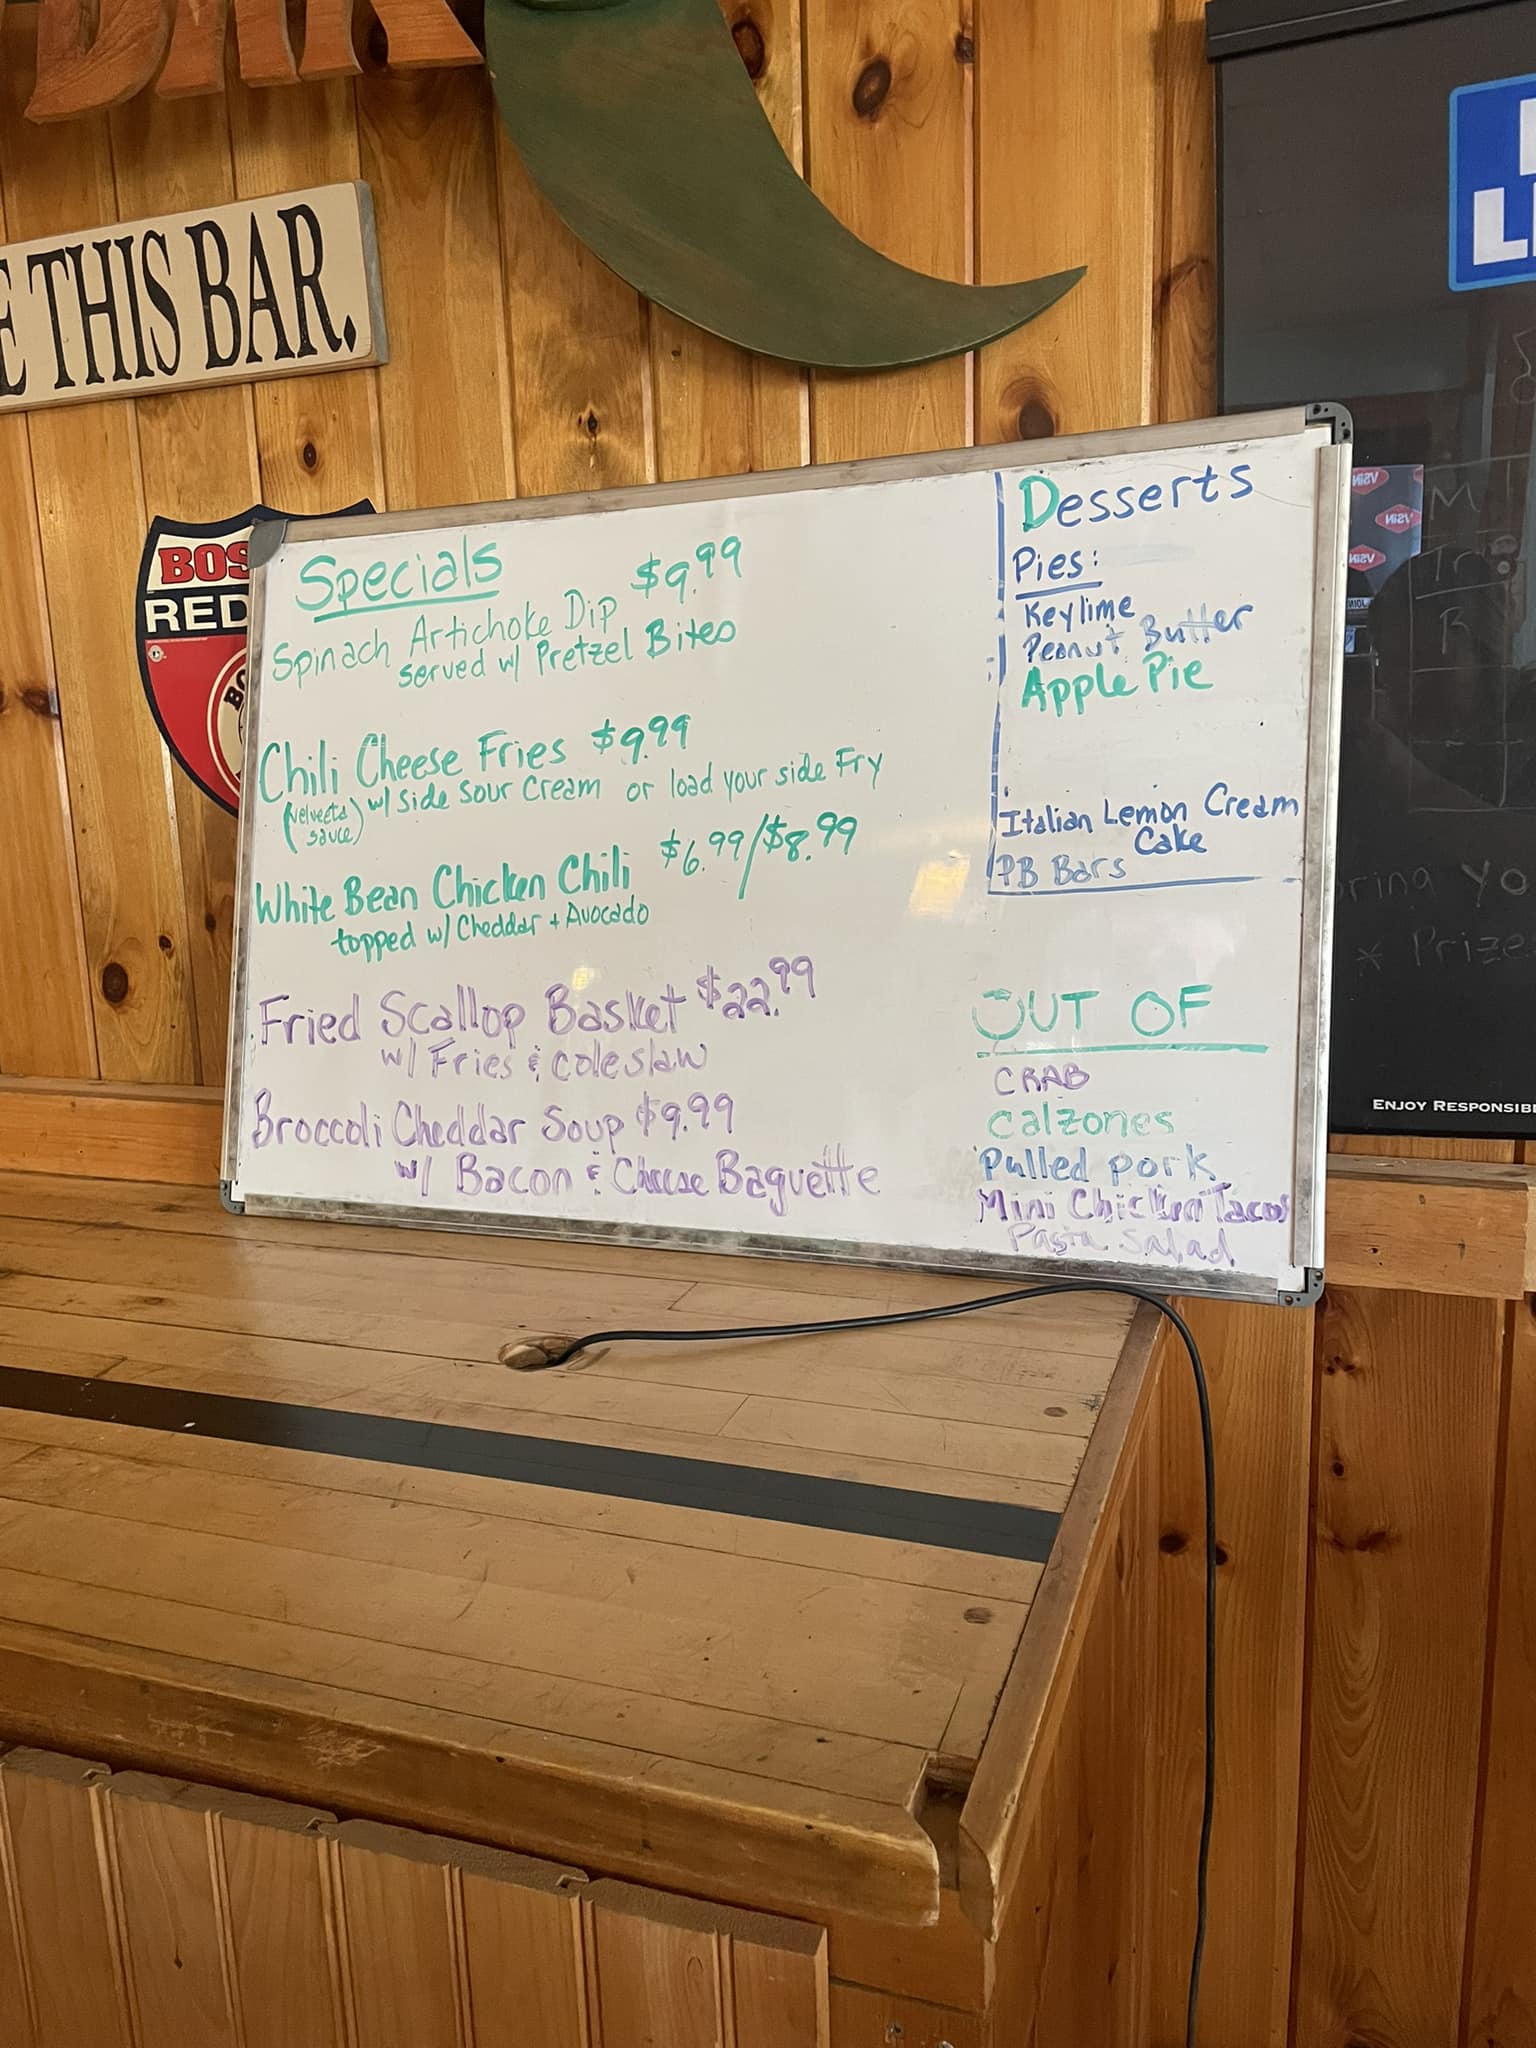 BAR
E THIS BAR.
BOS
RED
BO
L
Specials
Spinach Artichoke Dip $9.99
Served w/ Pretzel Bites
Chili Cheese Fries $9.99
(Velveeta sauce) w/ side sour cream or load your side Fry
White Bean Chicken Chili $6.99/$8.99
topped w/ Cheddar + Avocado
Fried Scallop Basket $22.99
w/ Fries & coleslaw
Broccoli Cheddar Soup $9.99
w/ Bacon & Cheese Baguette
Desserts
Pies:
Keylime
Peanut Butter
Apple Pie
Italian Lemon Cream
Cake
PB Bars
OUT OF
CRAB
Calzones
Pulled pork
Mini Chicken Tacos
Pasta Salad
VSiN
VSiN
VSiN
M
R
bring yo
* Prize
ENJOY RESPONSIB